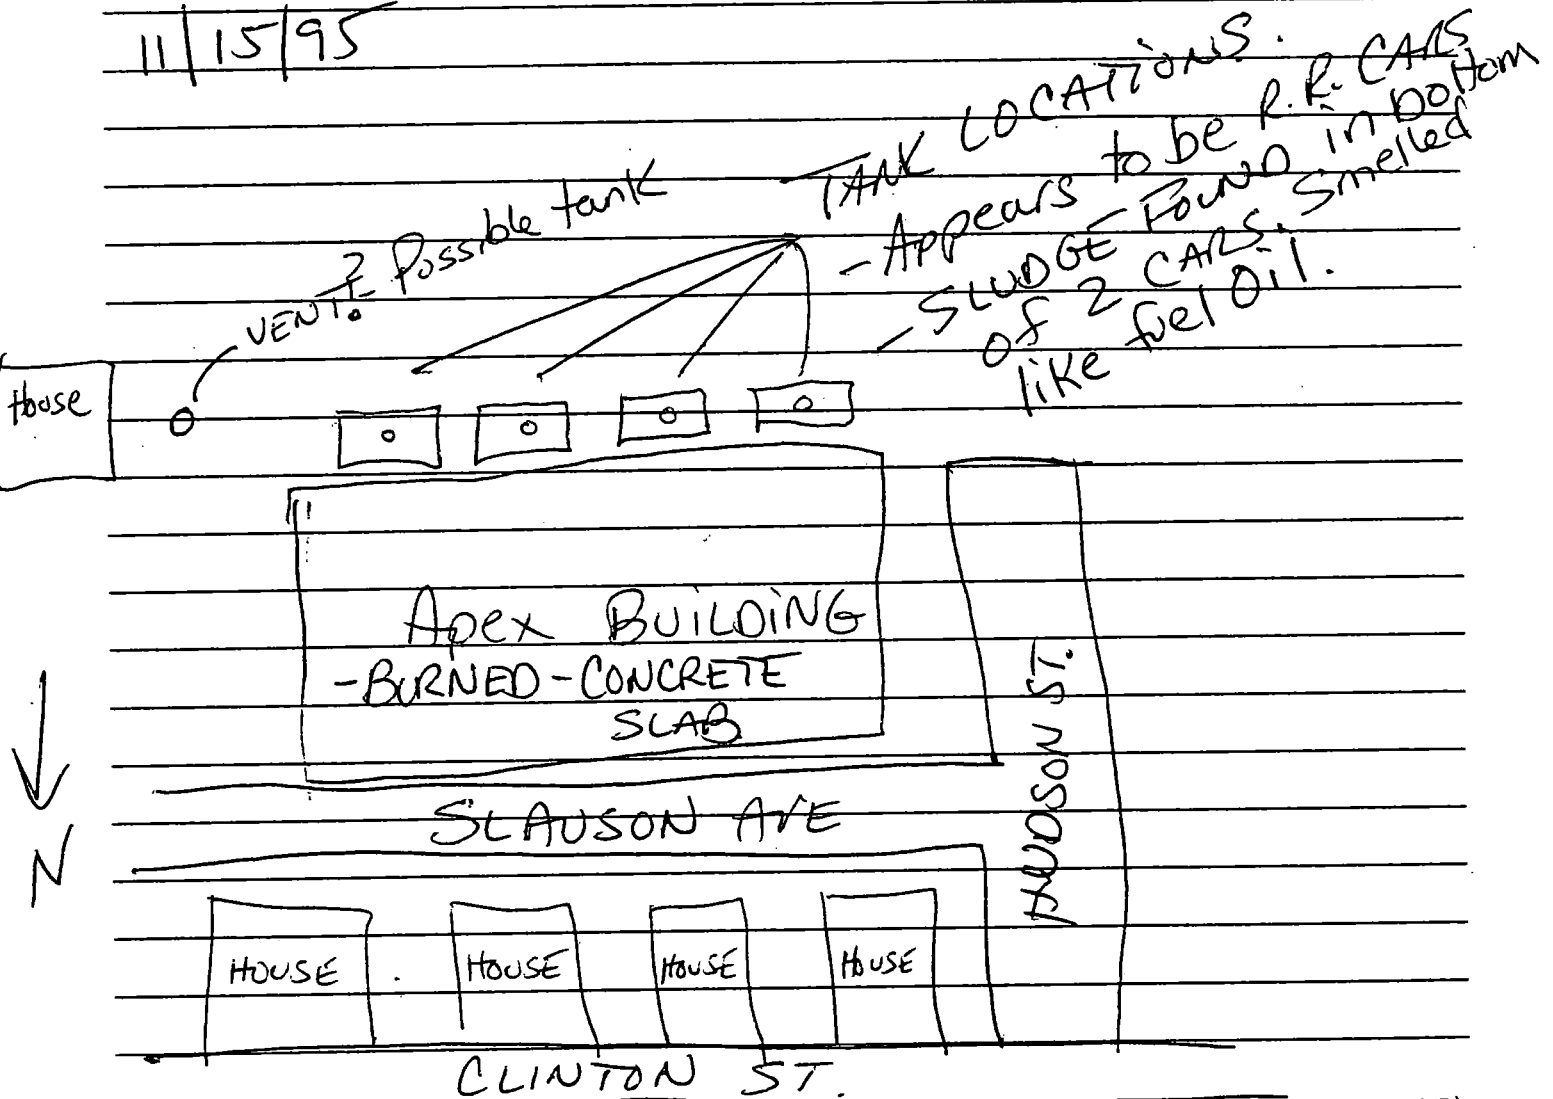 11/15/95
TANK LOCATIONS.
- Appears to be R.R. CARS
- SLUDGE FOUND in bottom
of 2 CARS. Smelled
like fuel oil.
VENT? - Possible tank
House
Apex BUILDING
- BURNED - CONCRETE
SLAB
HUDSON ST.
N
SLAUSON AVE
HOUSE HOUSE HOUSE HOUSE
CLINTON ST.